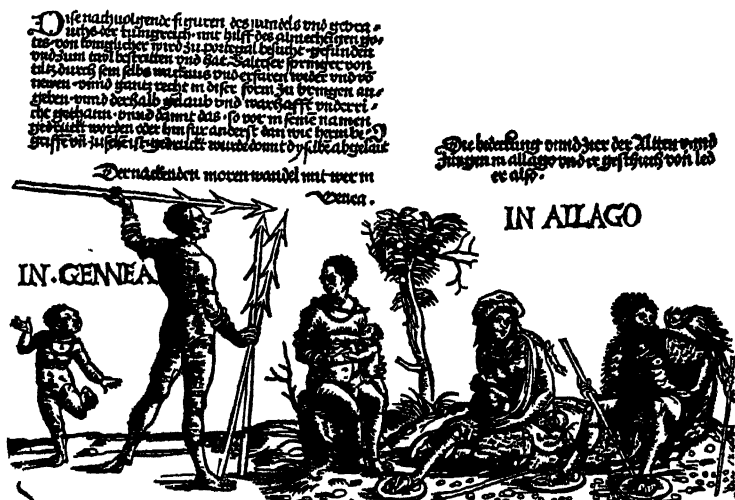 Dise nachuolgende figuren des wandels vnd gebreu=
uchs der kunigreich · mit hilff des almechtigen go=
tes · von kuniglicher wird zu portegal besucht · gefunden
vnd zum tayl bestritten vnd hat · Balteser springer von
durch sein selbs vnd erfaren wider vnd vō
newen · vnnd gantz recht in diser form zu bringen an=
geben · vnnd derhalb gelaub vnd warhafft vnderri=
che gethann · vnnd damit das · so vor in seine namen
gedruckt worden oder hinfur anderst dan wie
griffe vn̄ zusehe ist · gedruckt wurde domit dyselbe
Der nackenden moren wandel mit wer in
Genea ·
Die bedeckung vnnd zier der Alten vnnd
Jungen in allago vnd ir geschuch von led
er also ·
IN · GENNEA
IN ALLAGO